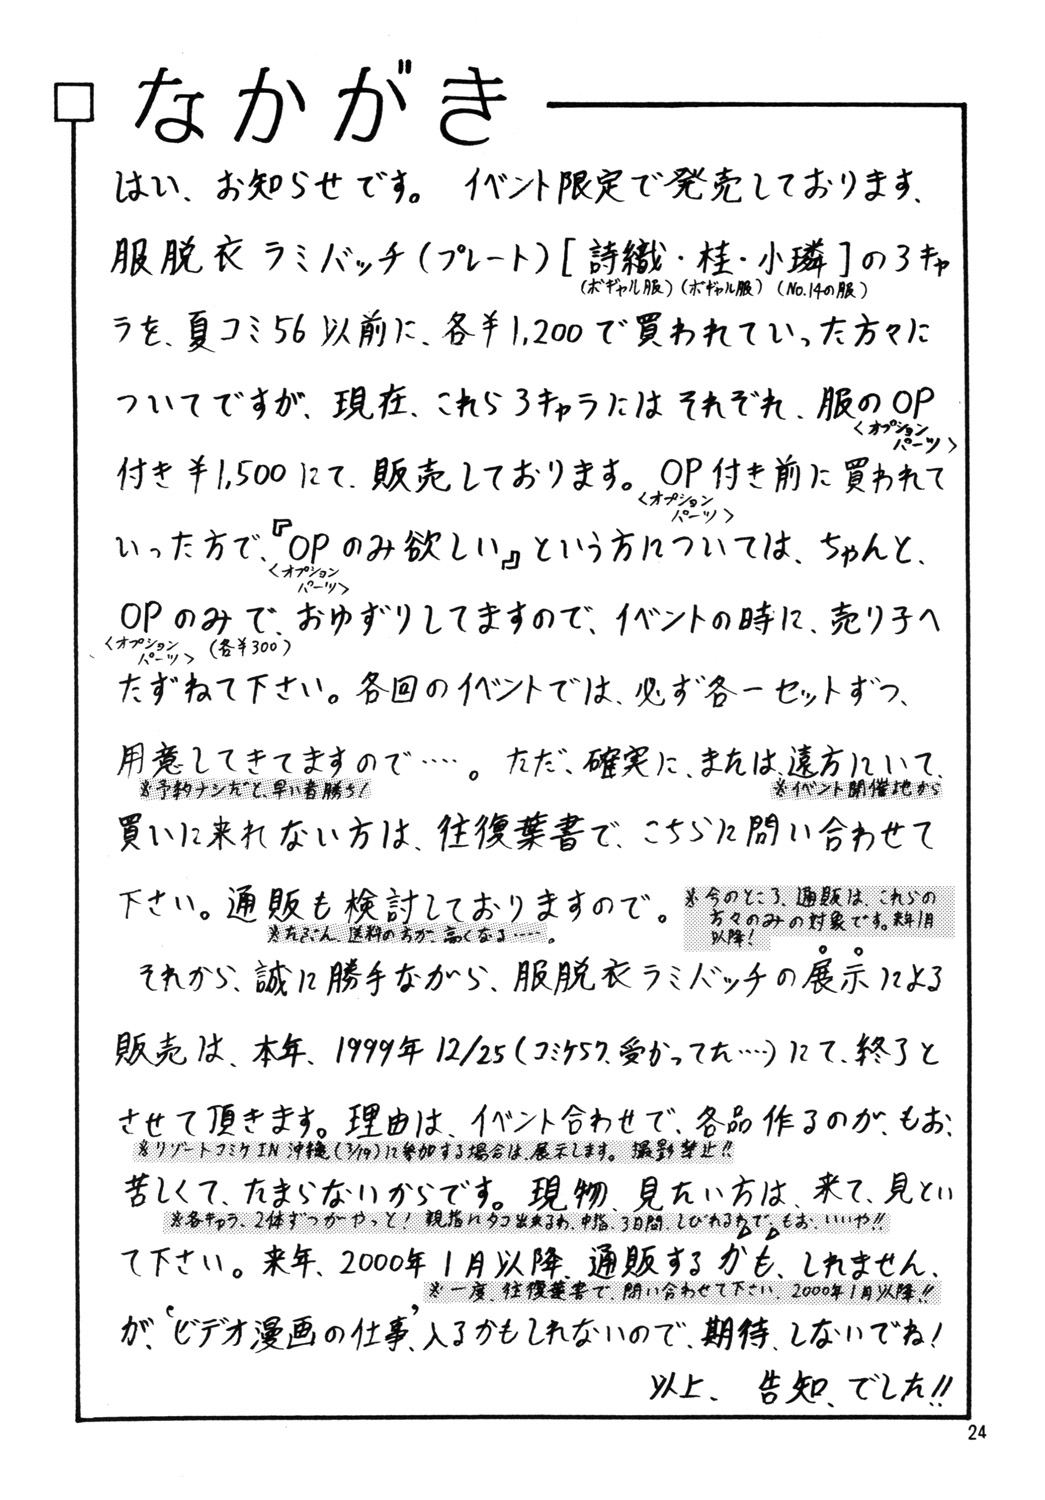 なかがき
はい、お知らせです。 イベント限定で発売しております、
服脱衣ラミバッチ(プレート)[詩織・桂・小璘]の3キャ
(ボギャル服)(ボギャル服)(No.14の服)
ラを、夏コミ56以前に、各¥1,200で買われていった方々に
ついてですが、現在、これら3キャラにはそれぞれ、服のOP
<オプションパーツ>
付き¥1,500にて、販売しております。OP付き前に買われて
<オプションパーツ>
いった方で、『OPのみ欲しい』という方については、ちゃんと、
<オプションパーツ>
OPのみで、おゆずりしてますので、イベントの時に、売り子へ
<オプションパーツ> (各¥300)
たずねて下さい。各回のイベントでは、必ず各一セットずつ、
用意してきてますので‥‥。ただ、確実に、または、遠方にいて、
※予約ナシだと、早い者勝ち! ※イベント開催地から
買いに来れない方は、往復葉書で、こちらに問い合わせて
下さい。通販も検討しておりますので。
※今のところ、通販は、これらの
方々のみの対象です。来年1月
以降!
※たぶん、送料の方が、高くなる‥‥。
それから、誠に勝手ながら、服脱衣ラミバッチの展示による
販売は、本年、1999年12/25(コミケ57、受かってた‥‥)にて、終了と
させて頂きます。理由は、イベント合わせで、各品作るのが、もお、
※リゾートコミケIN沖縄(3/19)に参加する場合は、展示します。撮影禁止!!
苦しくて、たまらないからです。現物、見たい方は、来て、見とい
※各キャラ、2体ずつがやっと! 親指にタコ出来るわ、中指、3日間、しびれるわで、もお、いいや!!
て下さい。来年、2000年1月以降、通販するかも、しれません、
※一度、往復葉書で、問い合わせて下さい、2000年1月以降!!
が、‘ビデオ漫画の仕事’、入るかもしれないので、期待、しないでね!
以上、告知、でした!!
24